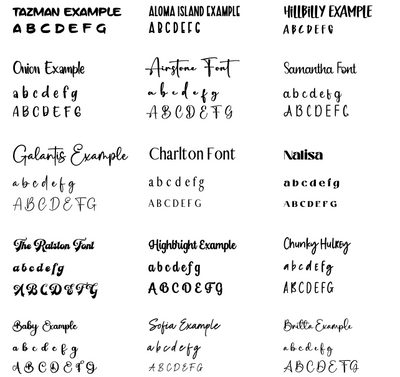 TAZMAN EXAMPLE
A B C D E F G
ALOMA ISLAND EXAMPLE
A B C D E F G
HILLBILLY EXAMPLE
A B C D E F G
Onion Example
a b c d e f g
A B C D E F G
Airstone Font
a b c d e f g
A B C D E F G
Samantha Font
a b c d e f g
A B C D E F G
Galantis Example
a b c d e f g
A B C D E F G
Charlton Font
a b c d e f g
A B C D E F G
Nalisa
a b c d e f g
A B C D E F G
The Ralston Font
a b c d e f g
A B C D E F G
Hightright Example
a b c d e f g
A B C D E F G
Chunky Hulkey
a b c d e f g
A B C D E F G
Baby Example
a b c d e f g
A B C D E F G
Sofia Example
a b c d e f g
A B C D E F G
Britta Example
a b c d e f g
A B C D E F G